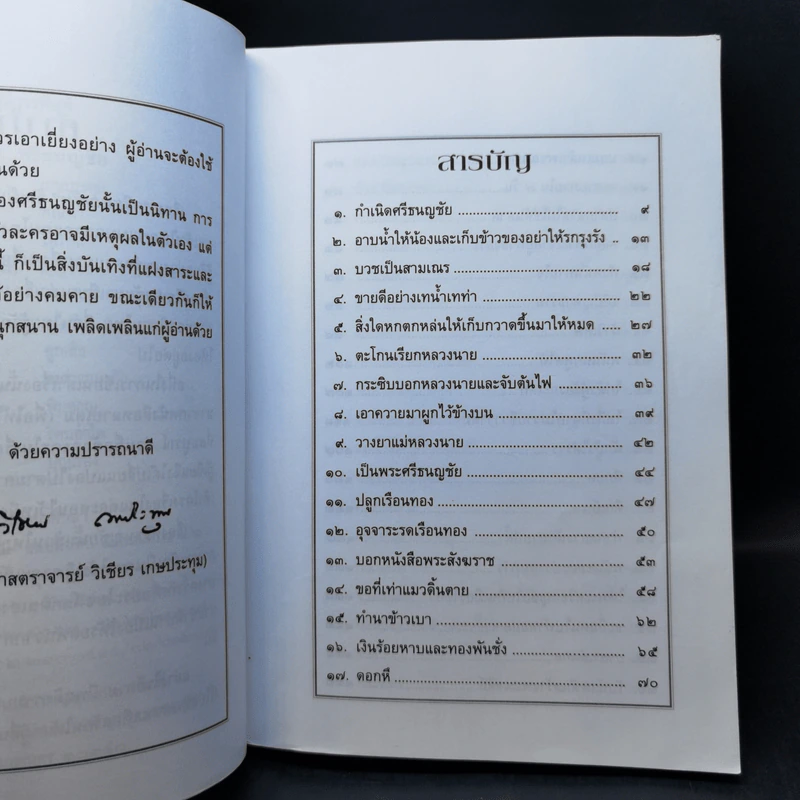 วรเอาเยี่ยงอย่าง ผู้อ่านจะต้องใช้
นด้วย
องศรีธนญชัยนั้นเป็นนิทาน การ
วละครอาจมีเหตุผลในตัวเอง แต่
นี้ ก็เป็นสิ่งบันเทิงที่แฝงสาระและ
อย่างคมคาย ขณะเดียวกันก็ให้
นุกสนาน เพลิดเพลินแก่ผู้อ่านด้วย
ด้วยความปรารถนาดี
าสตราจารย์ วิเชียร เกษประทุม)
สารบัญ
๑. กำเนิดศรีธนญชัย ........................................ ๙
๒. อาบน้ำให้น้องและเก็บข้าวของอย่าให้รกรุงรัง .. ๑๓
๓. บวชเป็นสามเณร ........................................ ๑๘
๔. ขายดีอย่างเทน้ำเทท่า ................................. ๒๒
๕. สิ่งใดหกตกหล่นให้เก็บกวาดขึ้นมาให้หมด ....... ๒๗
๖. ตะโกนเรียกหลวงนาย ................................. ๓๒
๗. กระซิบบอกหลวงนายและจับต้นไฟ ................ ๓๖
๘. เอาควายมาผูกไว้ข้างบน .............................. ๓๙
๙. วางยาแม่หลวงนาย ..................................... ๔๒
๑๐. เป็นพระศรีธนญชัย ..................................... ๔๔
๑๑. ปลูกเรือนทอง ............................................ ๔๗
๑๒. อุจจาระรดเรือนทอง .................................... ๕๐
๑๓. บอกหนังสือพระสังฆราช .............................. ๕๓
๑๔. ขอที่เท่าแมวดิ้นตาย ................................... ๕๘
๑๕. ทำนาข้าวเบา ............................................. ๖๒
๑๖. เงินร้อยหาบและทองพันชั่ง ........................... ๖๕
๑๗. ดอกหึ ...................................................... ๗๐